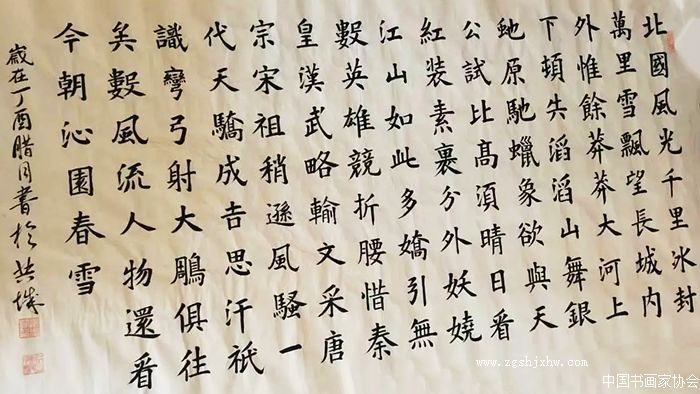 北國風光千里冰封
萬里雪飄望長城内
外惟餘莽莽大河上
下頓失滔滔山舞銀
虵原馳蠟象欲與天
公試比髙須晴日看
紅装素裹分外妖嬈
江山如此多嬌引無
數英雄競折腰惜秦
皇漢武略輸文采唐
宗宋祖稍遜風騷一
代天驕成吉思汗祇
識彎弓射大鵰俱往
矣數風流人物還看
今朝沁園春雪
歲在丁酉腊月書於共城
www.zgshjxhw.com
中国书画家协会